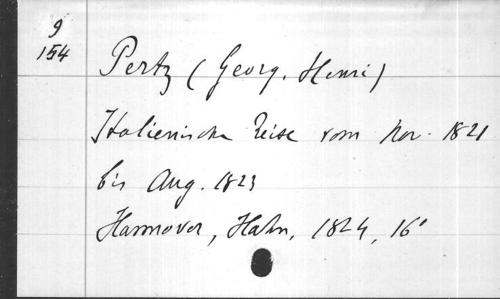 9
154
Pertz (Georg. Henri)
Italienische Reise vom Nov. 1821
bis Aug. 1823
Hannover, Hahn, 1824, 16°